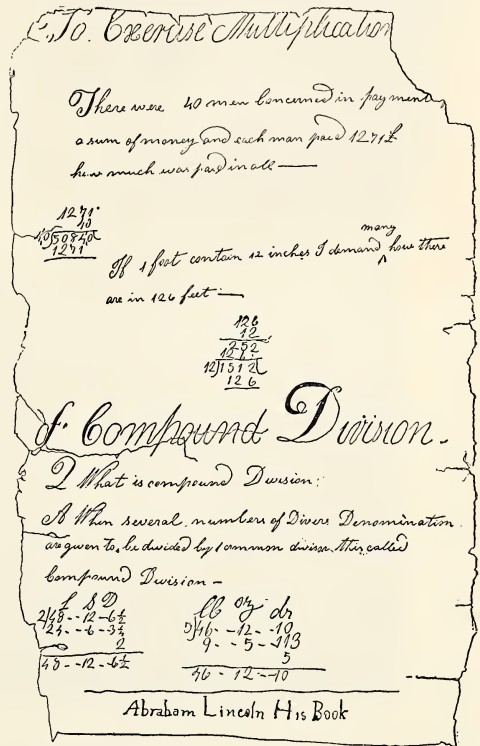 To Exercise Multiplication
There were 40 men Concerned in payment
a sum of money and each man paid 1271£
how much was paid in all —
1271
40
40)50840(
1271
many
If 1 foot contain 12 inches I demand ^ how there
are in 126 feet —
126
12
252
126
12)1512(
126
of Compound Division -
Q What is compound Division:
A When several numbers of Divers Denomination
are given to be divided by 1 common divisor this called
Compound Division -
£ S D
2)48--12-6½
24--6-3¼
2
48--12-6½
lb oz dr
5)46--12--10
9--5--113
5
46-12--10
Abraham Lincoln His Book